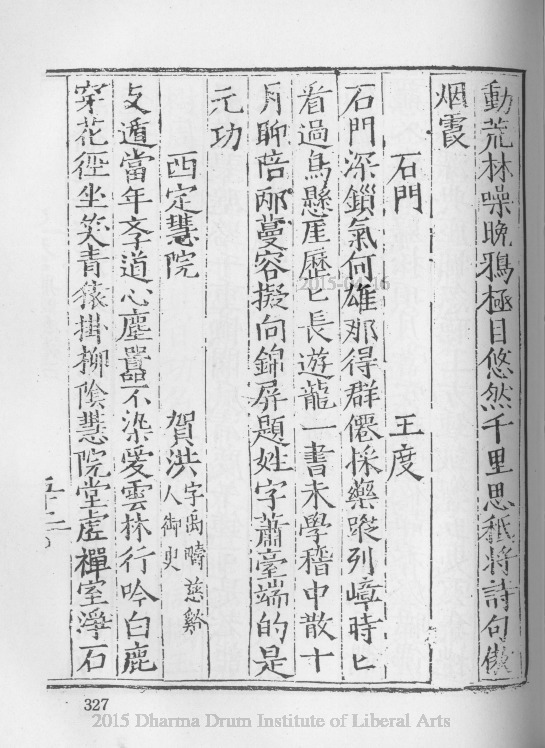 動荒林噪晚鴉極目悠然千里思秪將詩句傲
烟霞
石門　王度
石門深鎖氣何雄那得群僊採藥蹤列嶂時匕
看過鳥懸厓歷匕長遊龍一書未學稽中散十
月聊陪邴蔓容擬向錦屏題姓字蕭臺端的是
元功
西定慧院　賀洪字禹疇慈谿
人御史
支遁當年斈道心塵囂不染愛雲林行吟白鹿
穿花徑坐笑青猿掛柳陰慧院堂虛禪室淨石
五十二
327
2015-04-16
2015 Dharma Drum Institute of Liberal Arts